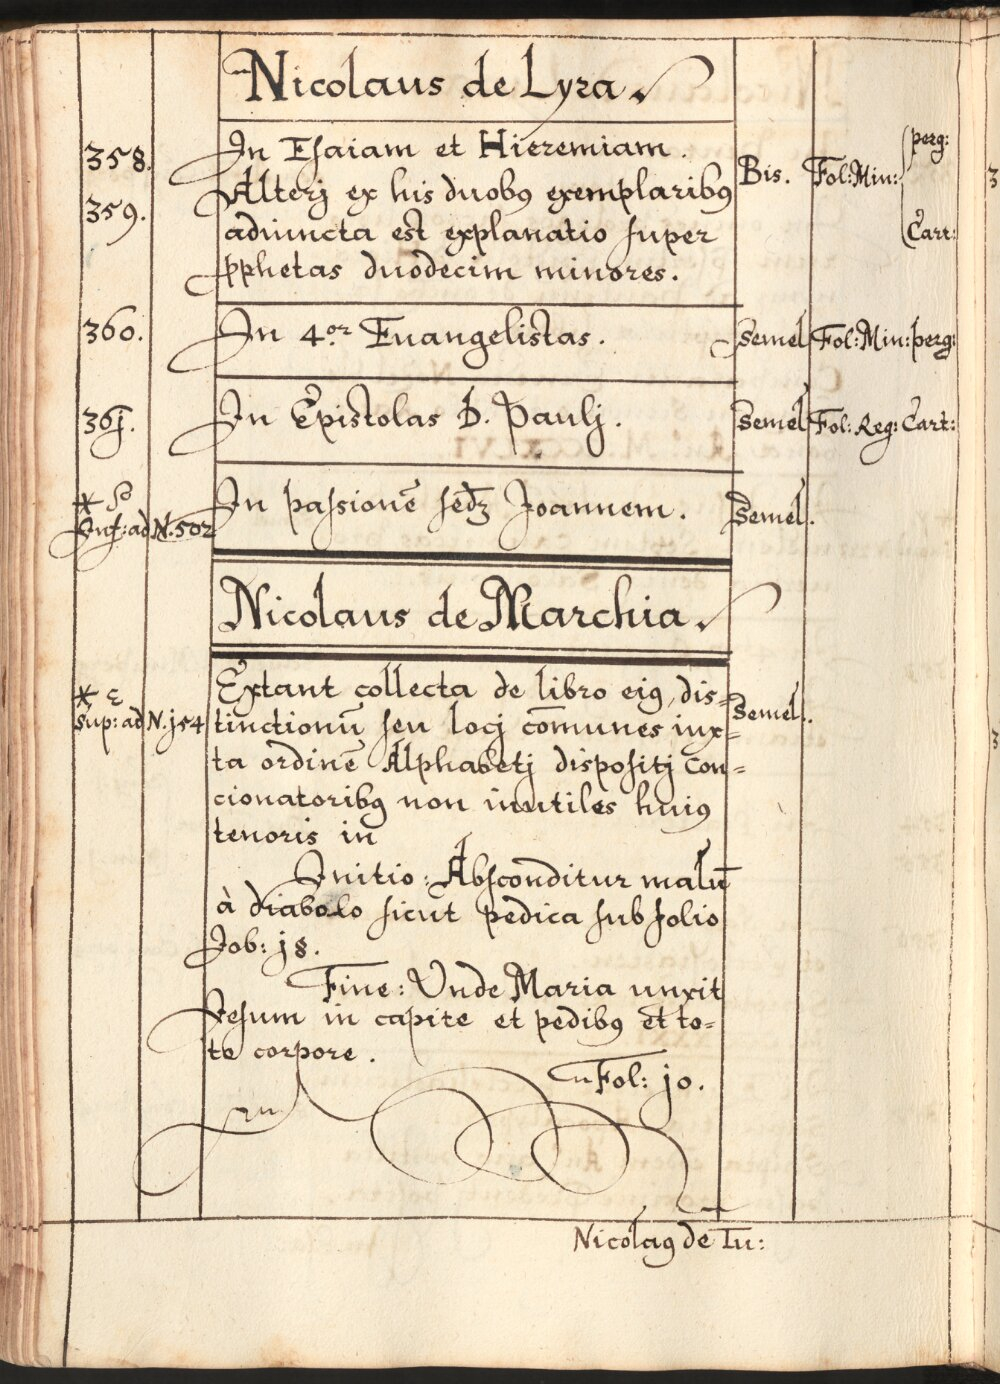 Nicolaus de Lyra.
358. In Esaiam et Hieremiam. perg:
Alterj ex his duobꝰ exemplaribꝰ Bis. Fol: Min:
359. adiuncta est explanatio super Cart:
ꝓphetas duodecim minores.
360. In 4.or Euangelistas. Semel Fol: Min: perg:
36j. In Epistolas D. Paulj. Semel Fol: Reg: Cart:
In passionē secdꝫ Joannem. Semel.
Inf: ad N. 502
Nicolaus de Marchia.
Extant collecta de libro eiꝰ, dis=
Sup: ad N. j54 tinctionū seu locj com̄unes iux= Semel.
ta ordinē Alphabetj dispositj Con=
cionatoribꝰ non inutiles huiꝰ
tenoris in
Initio: Absconditur malū
à diabolo sicut pedica sub folio
Job: j8.
Fine: Unde Maria unxit
Jesum in capite et pedibꝰ et to=
to corpore.
Fol: jo.
Nicolaꝰ de Tu: